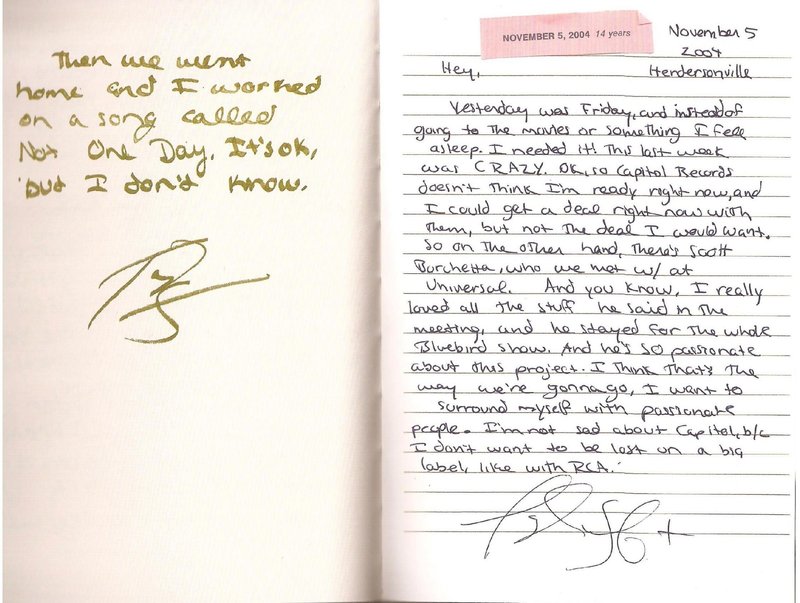 Then we went
home and I worked
on a song called
Not One Day. It's ok,
but I don't know.
NOVEMBER 5, 2004 14 years
November 5
2004
Hey,
Hendersonville
Yesterday was Friday, and instead of
going to the movies or something I feel
asleep. I needed it! This last week
was CRAZY. OK, so Capitol Records
doesn't think I'm ready right now, and
I could get a deal right now with
them, but not the deal I would want.
So on the other hand, there's Scott
Borchetta, who we met w/ at
Universal. And you know, I really
loved all the stuff he said in the
meeting, and he stayed for the whole
Bluebird show. And he's SO passionate
about this project. I think that's the
way we're gonna go, I want to
surround myself with passionate
people. I'm not sad about Capitol, b/c
I don't want to be lost on a big
label, like with RCA.